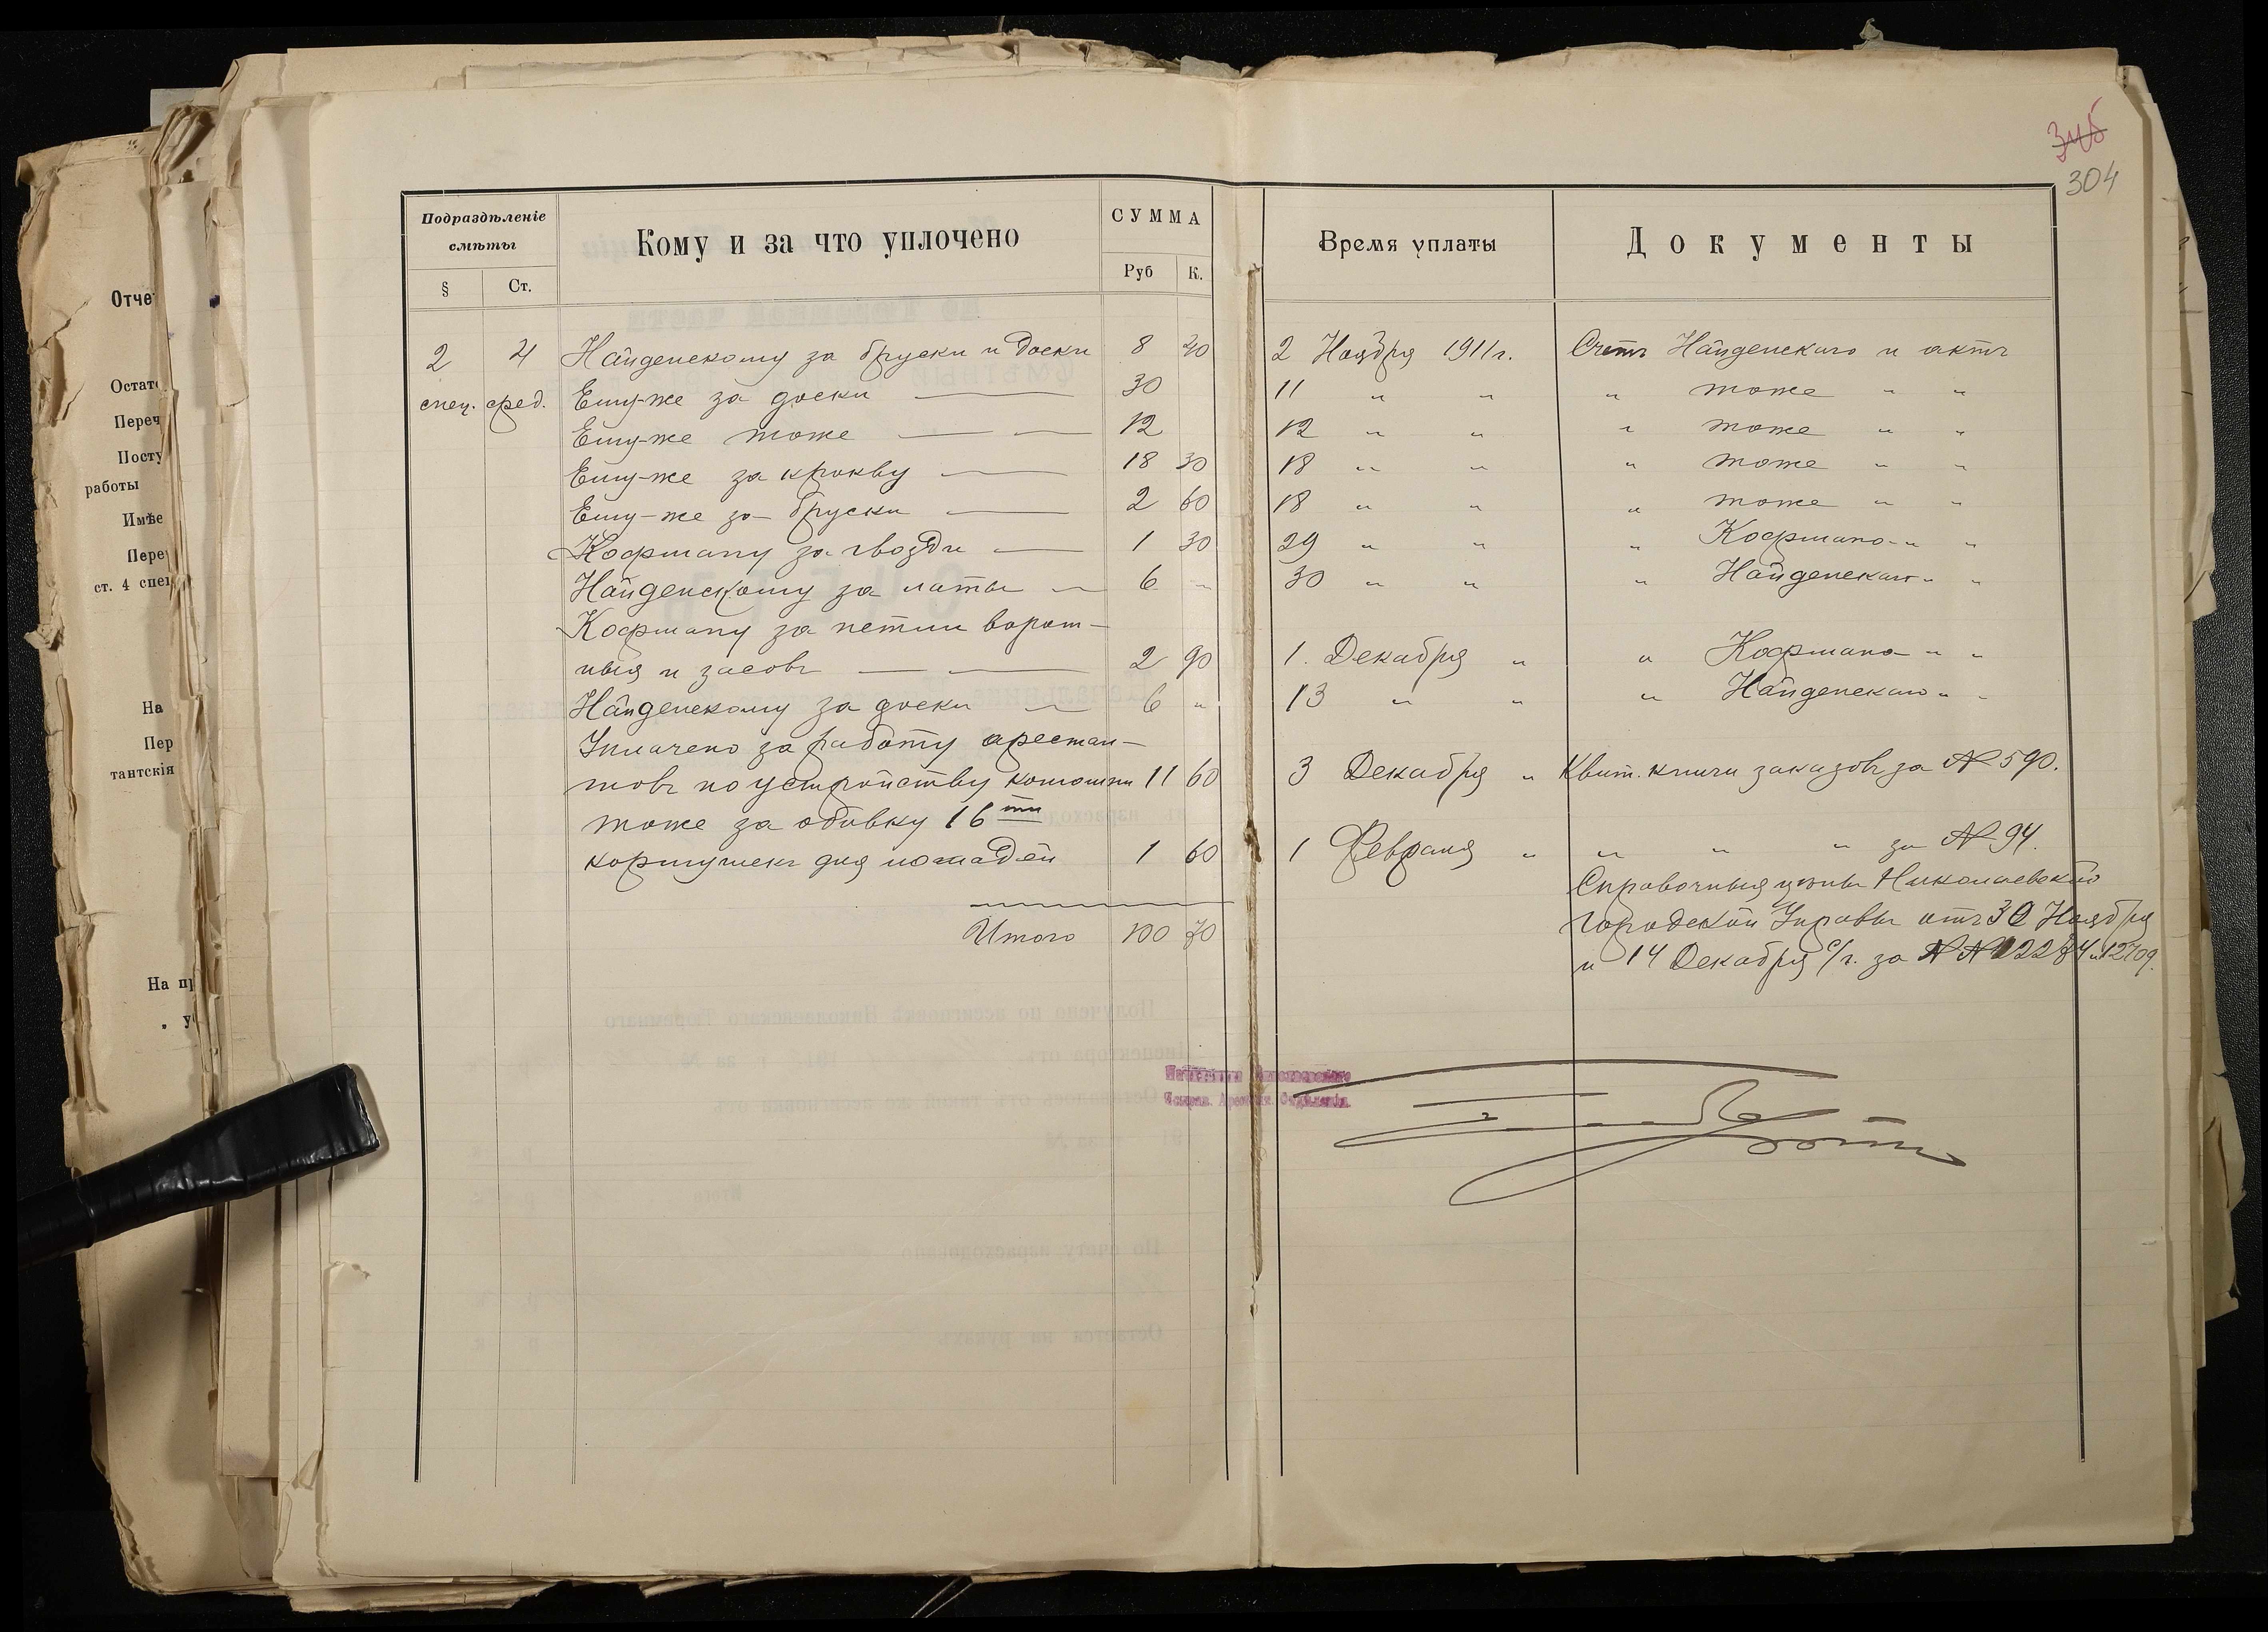 345
304
Подраздѣленіе смѣты
§ Ст.
Кому и за что уплочено
СУММА
Руб К.
Время уплаты
Документы
2 4 Найденскому за бруски и доски 8 40 2 Ноября 1911 г. Счетъ Найденскаго и актъ
спец. сред. Ему-же за доски — 30 11 " " " тоже " "
Ему-же тоже — — 12 12 " " " тоже " "
Ему-же за крокву — 18 30 18 " " " тоже " "
Ему-же за бруски — 2 60 18 " " " тоже " "
Кофману за гвозди — 1 30 29 " " " Кофмана " "
Найденскому за латы — 6 — 30 " " " Найденскаго " "
Кофману за петли ворот-
ныя и засовъ — — 2 90 1. Декабря " " Кофмана " "
Найденскому за доски — 6 " 13 " " " Найденскаго " "
Уплачено за работу арестан-
товъ по устройству конюшни 11 60 3 Декабря " Квит. книги заказовъ за № 590.
тоже за обивку 16ти
кормушекъ для лошадей 1 60 1 Февраля " " " " за № 94.
Справочныя цѣны Николаевской
Городской Управы отъ 30 Ноября
Итого 100 70
и 14 Декабря с/г. за №№ 12284 и 12709.
Отче
Остат
Переч
Посту
работы
Имѣе
Пере
ст. 4 спец
На
Пер
тантскія
На пр
„ у